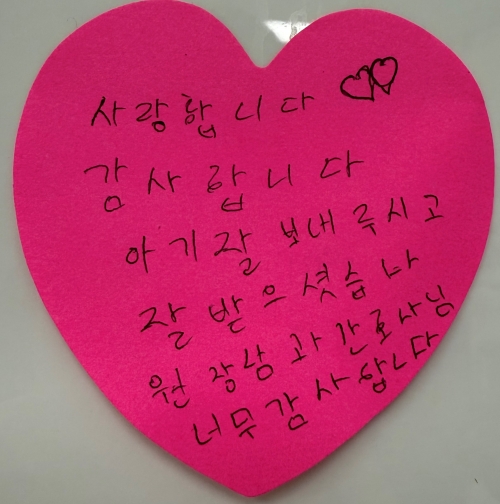 사랑합니다
감사합니다
아기잘 보내주시고
잘 받으셧습나
원장남과 간호사님
너무감사합니다